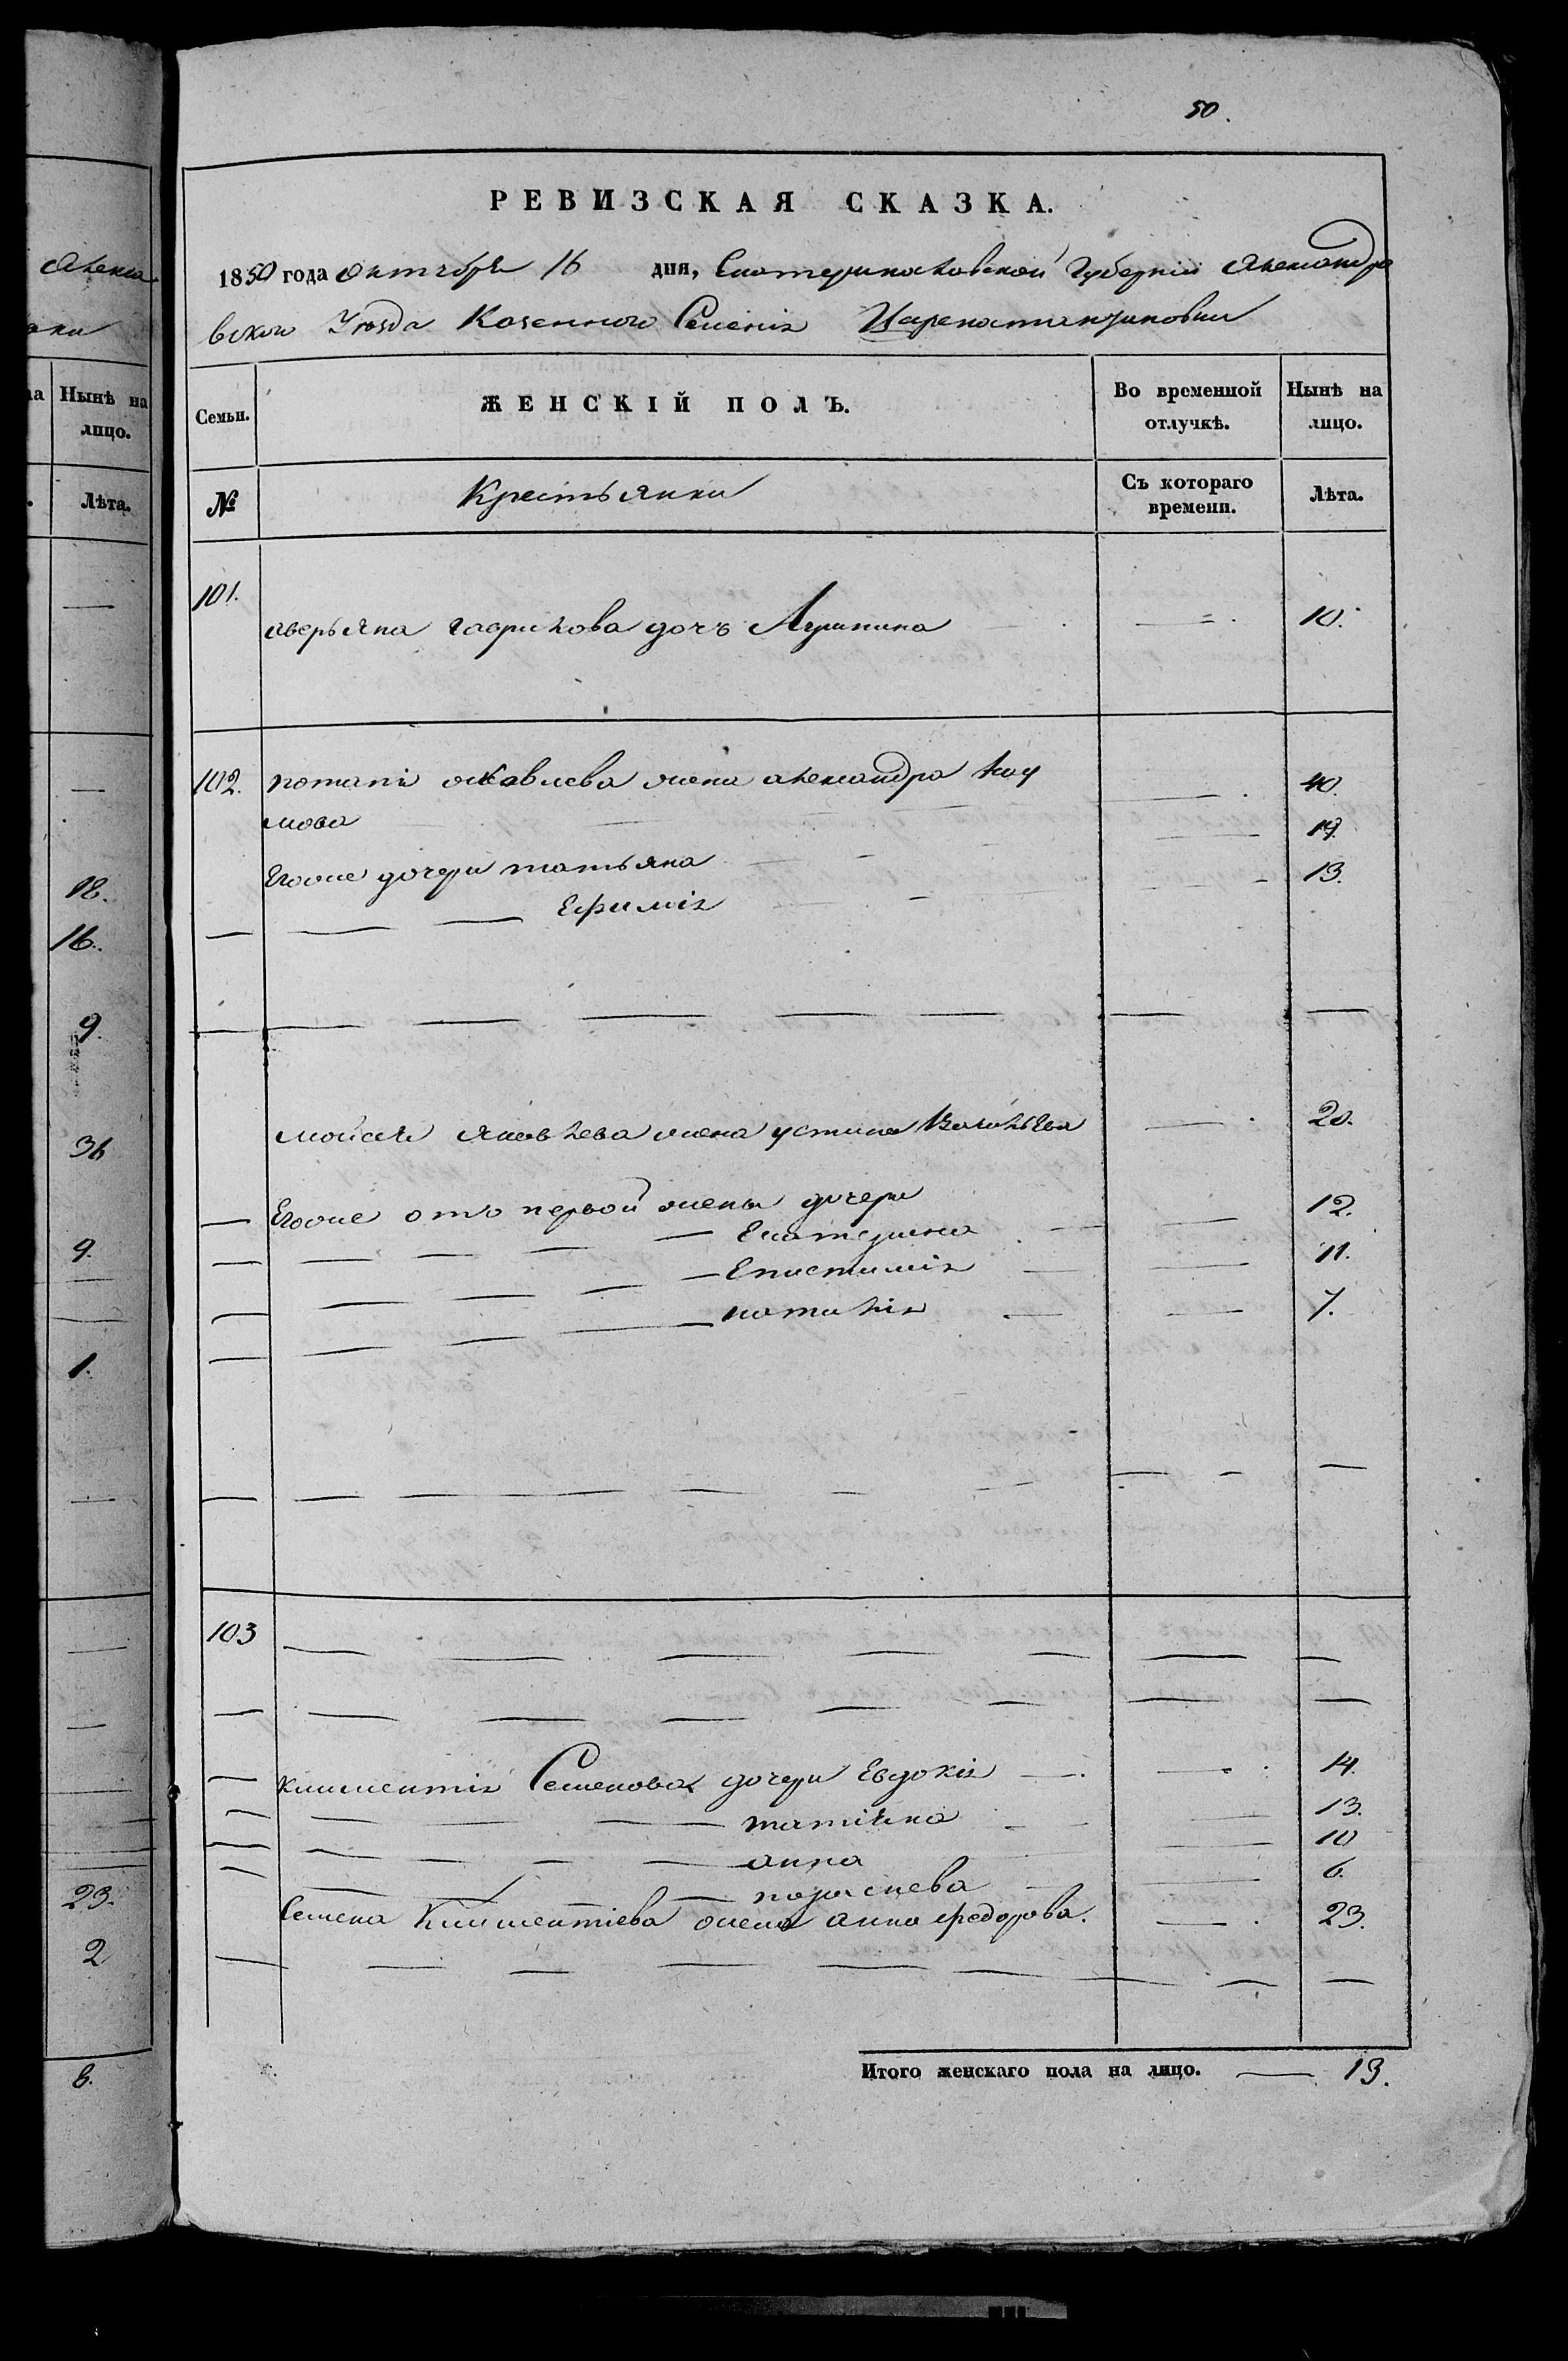 50.
РЕВИЗСКАЯ СКАЗКА.
1850 года октября 16 дня, Екатеринославской Губернии Александро
вского Уезда Казенного Селения Цареконстантиновки
Семьи. ЖЕНСКІЙ ПОЛЪ. Во временной отлучкѣ. Нынѣ на лицо.
№ Крестьянки Съ котораго времени. Лѣта.
101.
аверьяна гаврилова дочь 10.
102. потапа яковлева жена александра 40.
мова 19.
Егоже дочери татьяна 13.
Ефимія
моисея яковлева жена устина 20.
Егоже отъ первой жены дочери 12.
Екатерина
Епистимія 11.
наталія 7.
103
климентія Семенова дочери Евдокія 14.
татіяна 13.
анна 10
параскева 6.
Семена Климентіева жена анна федорова. 23.
Итого женскаго пола на лицо. 13.
Алекса
нки
на Нынѣ на лицо.
Лѣта.
18.
16.
9.
36
9.
1.
23.
2
8.